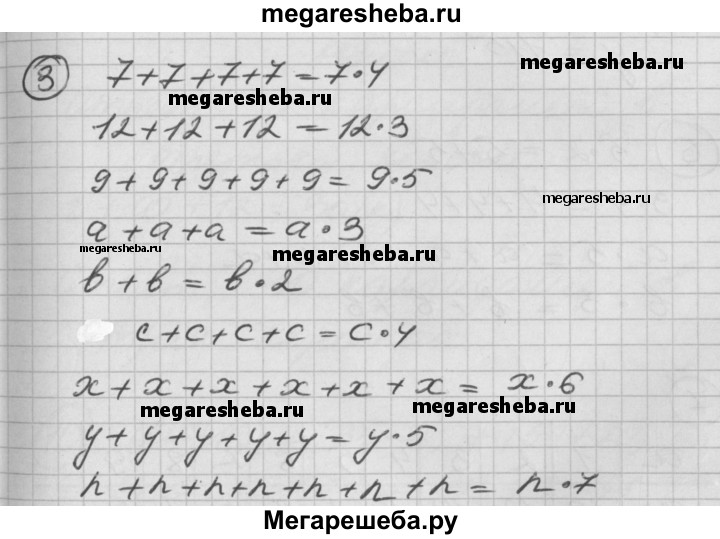 megaresheba.ru
3 7+7+7+7=7·4
megaresheba.ru
megaresheba.ru
12+12+12=12·3
9+9+9+9+9=9·5
megaresheba.ru
a+a+a=a·3
megaresheba.ru
megaresheba.ru
в+в=в·2
c+c+c+c=c·4
x+x+x+x+x+x=x·6
megaresheba.ru
megaresheba.ru
y+y+y+y+y=y·5
n+n+n+n+n+n+n=n·7
Мегарешеба.ру